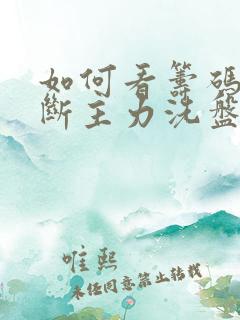 如何看筹码
断主力洗盘
唯熙
未经同意禁止转载